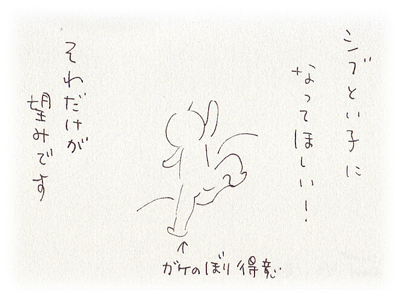 シブとい子に
なってほしい！
それだけが
望みです
↑
ガケのぼり得意